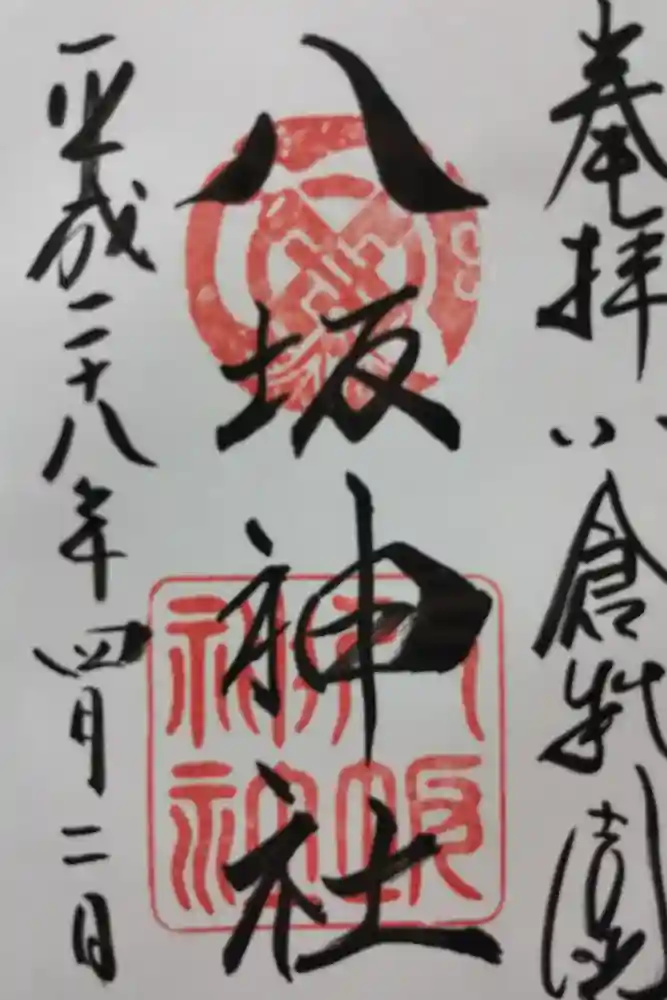 奉拝
小倉祇園
八坂神社
平成二十八年四月二日
八坂神社